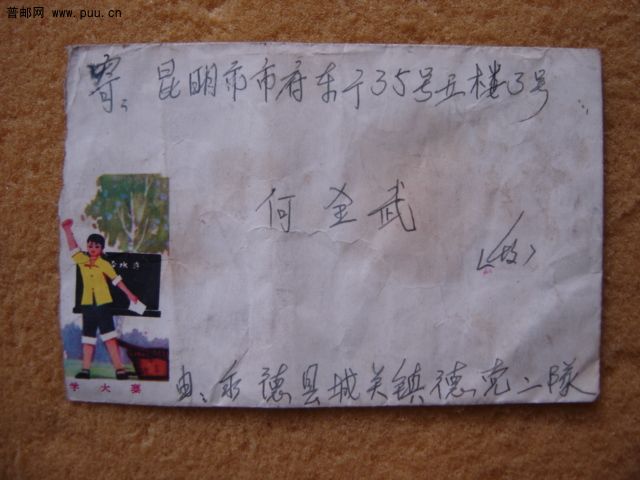 普邮网 www.puu.cn
寄: 昆明市市府东亍35号五楼3号
何全武
收
学大寨
由: 永德县城关镇德党二隊